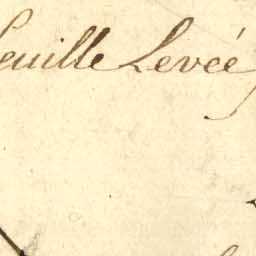 feuille Levée